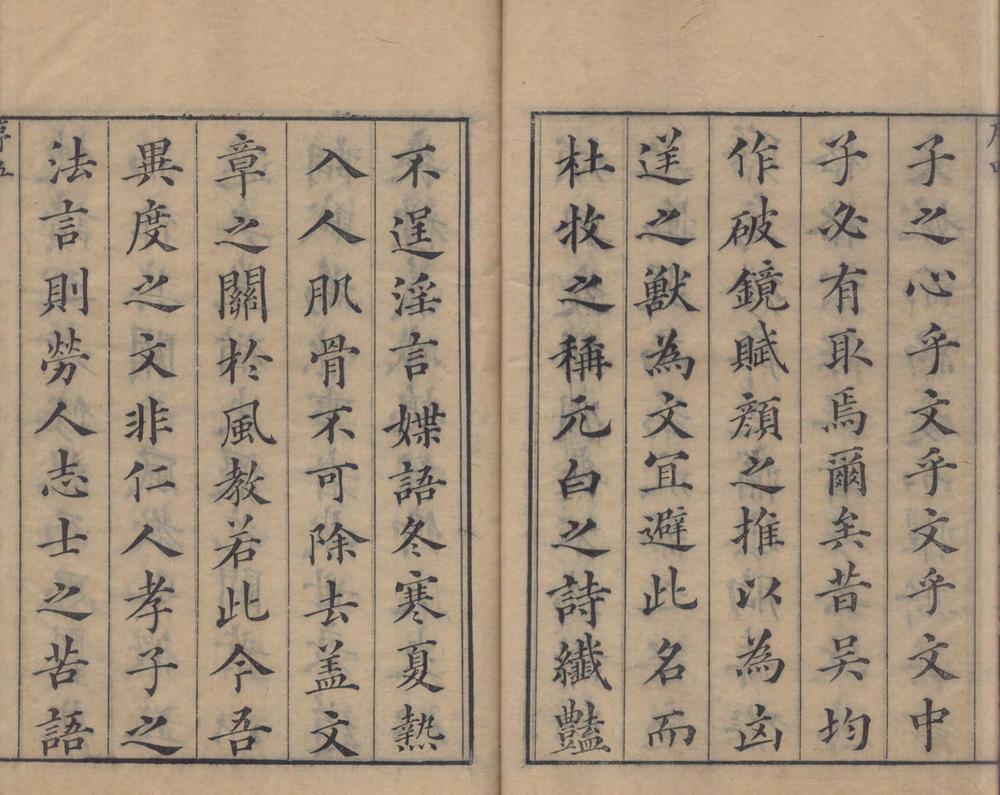 子之心乎文乎文乎文中
子必有取焉爾矣昔吴均
作破鏡賦顔之推以為凶
逆之獸為文宜避此名而
杜牧之稱元白之詩纖豔
不逞淫言媟語冬寒夏熱
入人肌骨不可除去盖文
章之關於風教若此今吾
異度之文非仁人孝子之
法言則勞人志士之苦語
序五